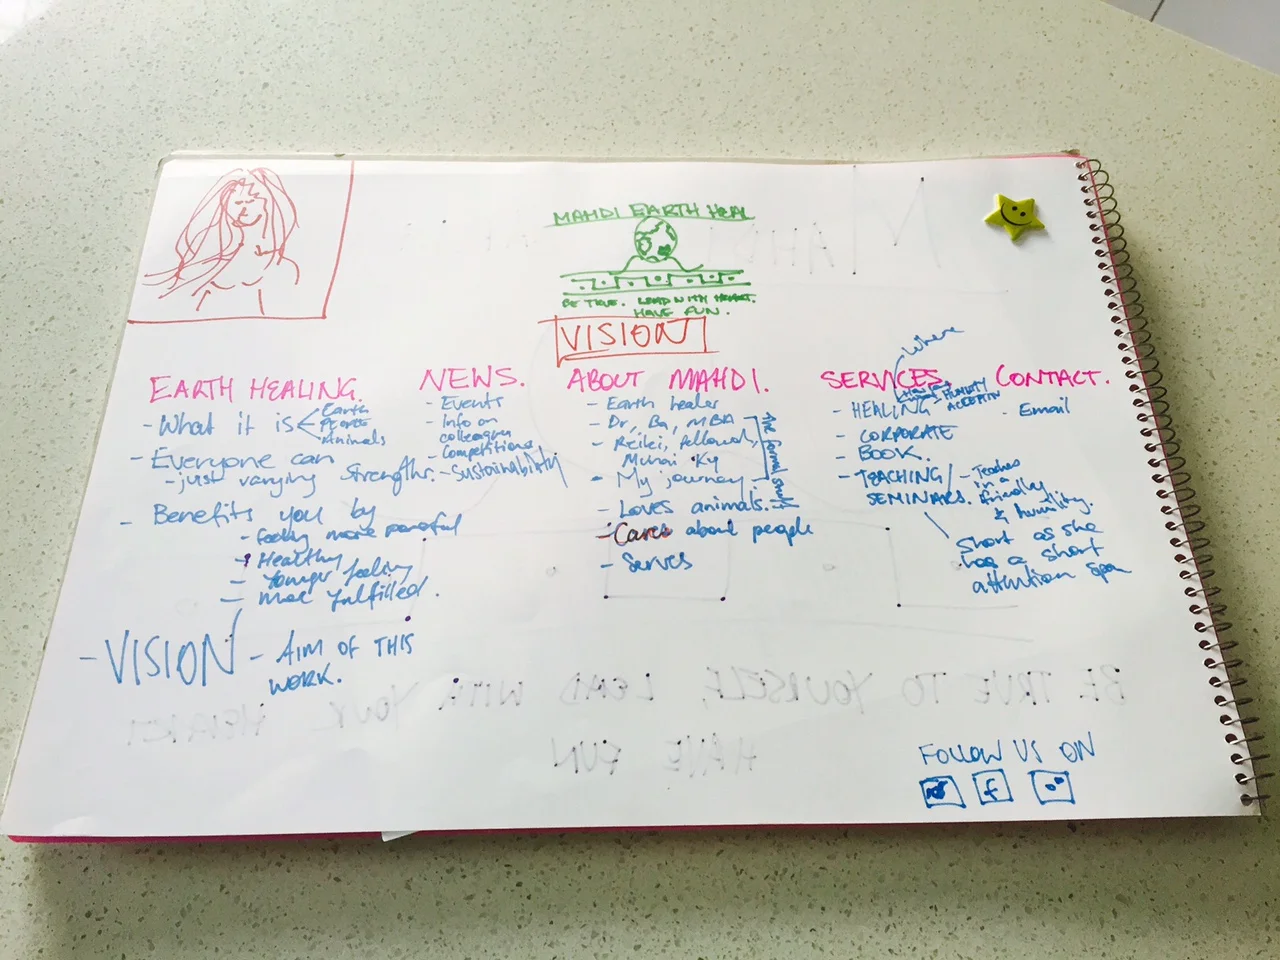 MAHDI EARTH HEAL
BE TRUE. LEAD WITH HEART.
HAVE FUN.
VISION
EARTH HEALING.
- What it is
Earth
People
Animals
- Everyone can
- just varying strengths.
- Benefits you by
- feeling more peaceful
- Healthy
- Younger feeling
- more fulfilled.
- VISION - AIM OF THIS
WORK.
NEWS.
- Events
- Info on
colleagues
- Competitions
- Sustainability
ABOUT MAHDI.
- Earth healer
- Dr, Ba, MBA
- Reiki, Pellowah,
Ky
- My journey
the formal stuff
- Loves animals.
- Cares about people
- Serves
SERVICES
Where
- HEALING
- CORPORATE
- BOOK.
- TEACHING/
SEMINARS.
- Teaches
in a
friendly
& humility.
Short as she
has a short
attention span
CONTACT.
- Email
BE TRUE TO YOURSELF, LEAD WITH YOUR HEART
HAVE FUN
FOLLOW US ON
f